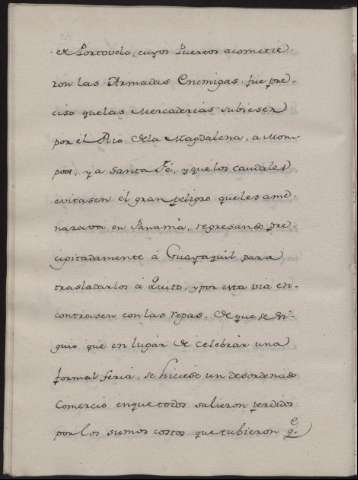 de Portovelo, cuyos Puertos acometie-
ron las Armadas Enemigas, fue pre-
ciso que las Mercaderias subiesen
por el Rio de la Magdalena, a Mom-
pox, y a Santa Fé, y que los caudales
evitasen el gran peligro que les ame-
nazava en Panamá, regresando pre-
cipitadamente á Guayaquil para
trasladarlos á Quito, y por esta via en-
contrasen con las ropas. De que se si-
guio que en lugar de celebrar una
formal feria, se hiciese un desordenado
Comercio en que todos salieron perdidos
por los sumos costos que tubieron qᵉ